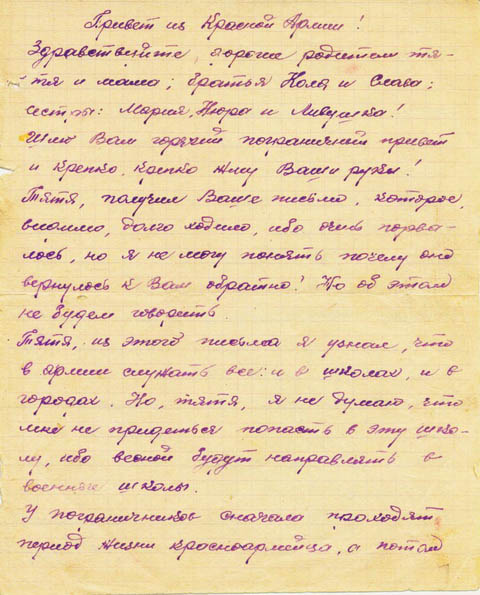 Привет из Красной Армии!
Здравствуйте, дорогие родители тя-
тя и мама; братья Коля и Слава;
сестры: Мария, Нюра и Ливушка!
Шлю Вам горячий пограничный привет
и крепко, крепко жму Ваши руки!
Тятя, получил Ваше письмо, которое,
видимо, долго ходило, ибо очень порва-
лось, но я не могу понять почему оно
вернулось к Вам обратно! Но об этом
не будем говорить.
Тятя, из этого письма я узнал, что
в армии служать все: и в школах, и в
городах. Но, тятя, я не думаю, что
мне не придеться попасть в эту шко-
лу, ибо весной будут направлять в
военные школы.
У пограничников сначала проходят
период жизни красноармейца, а потом